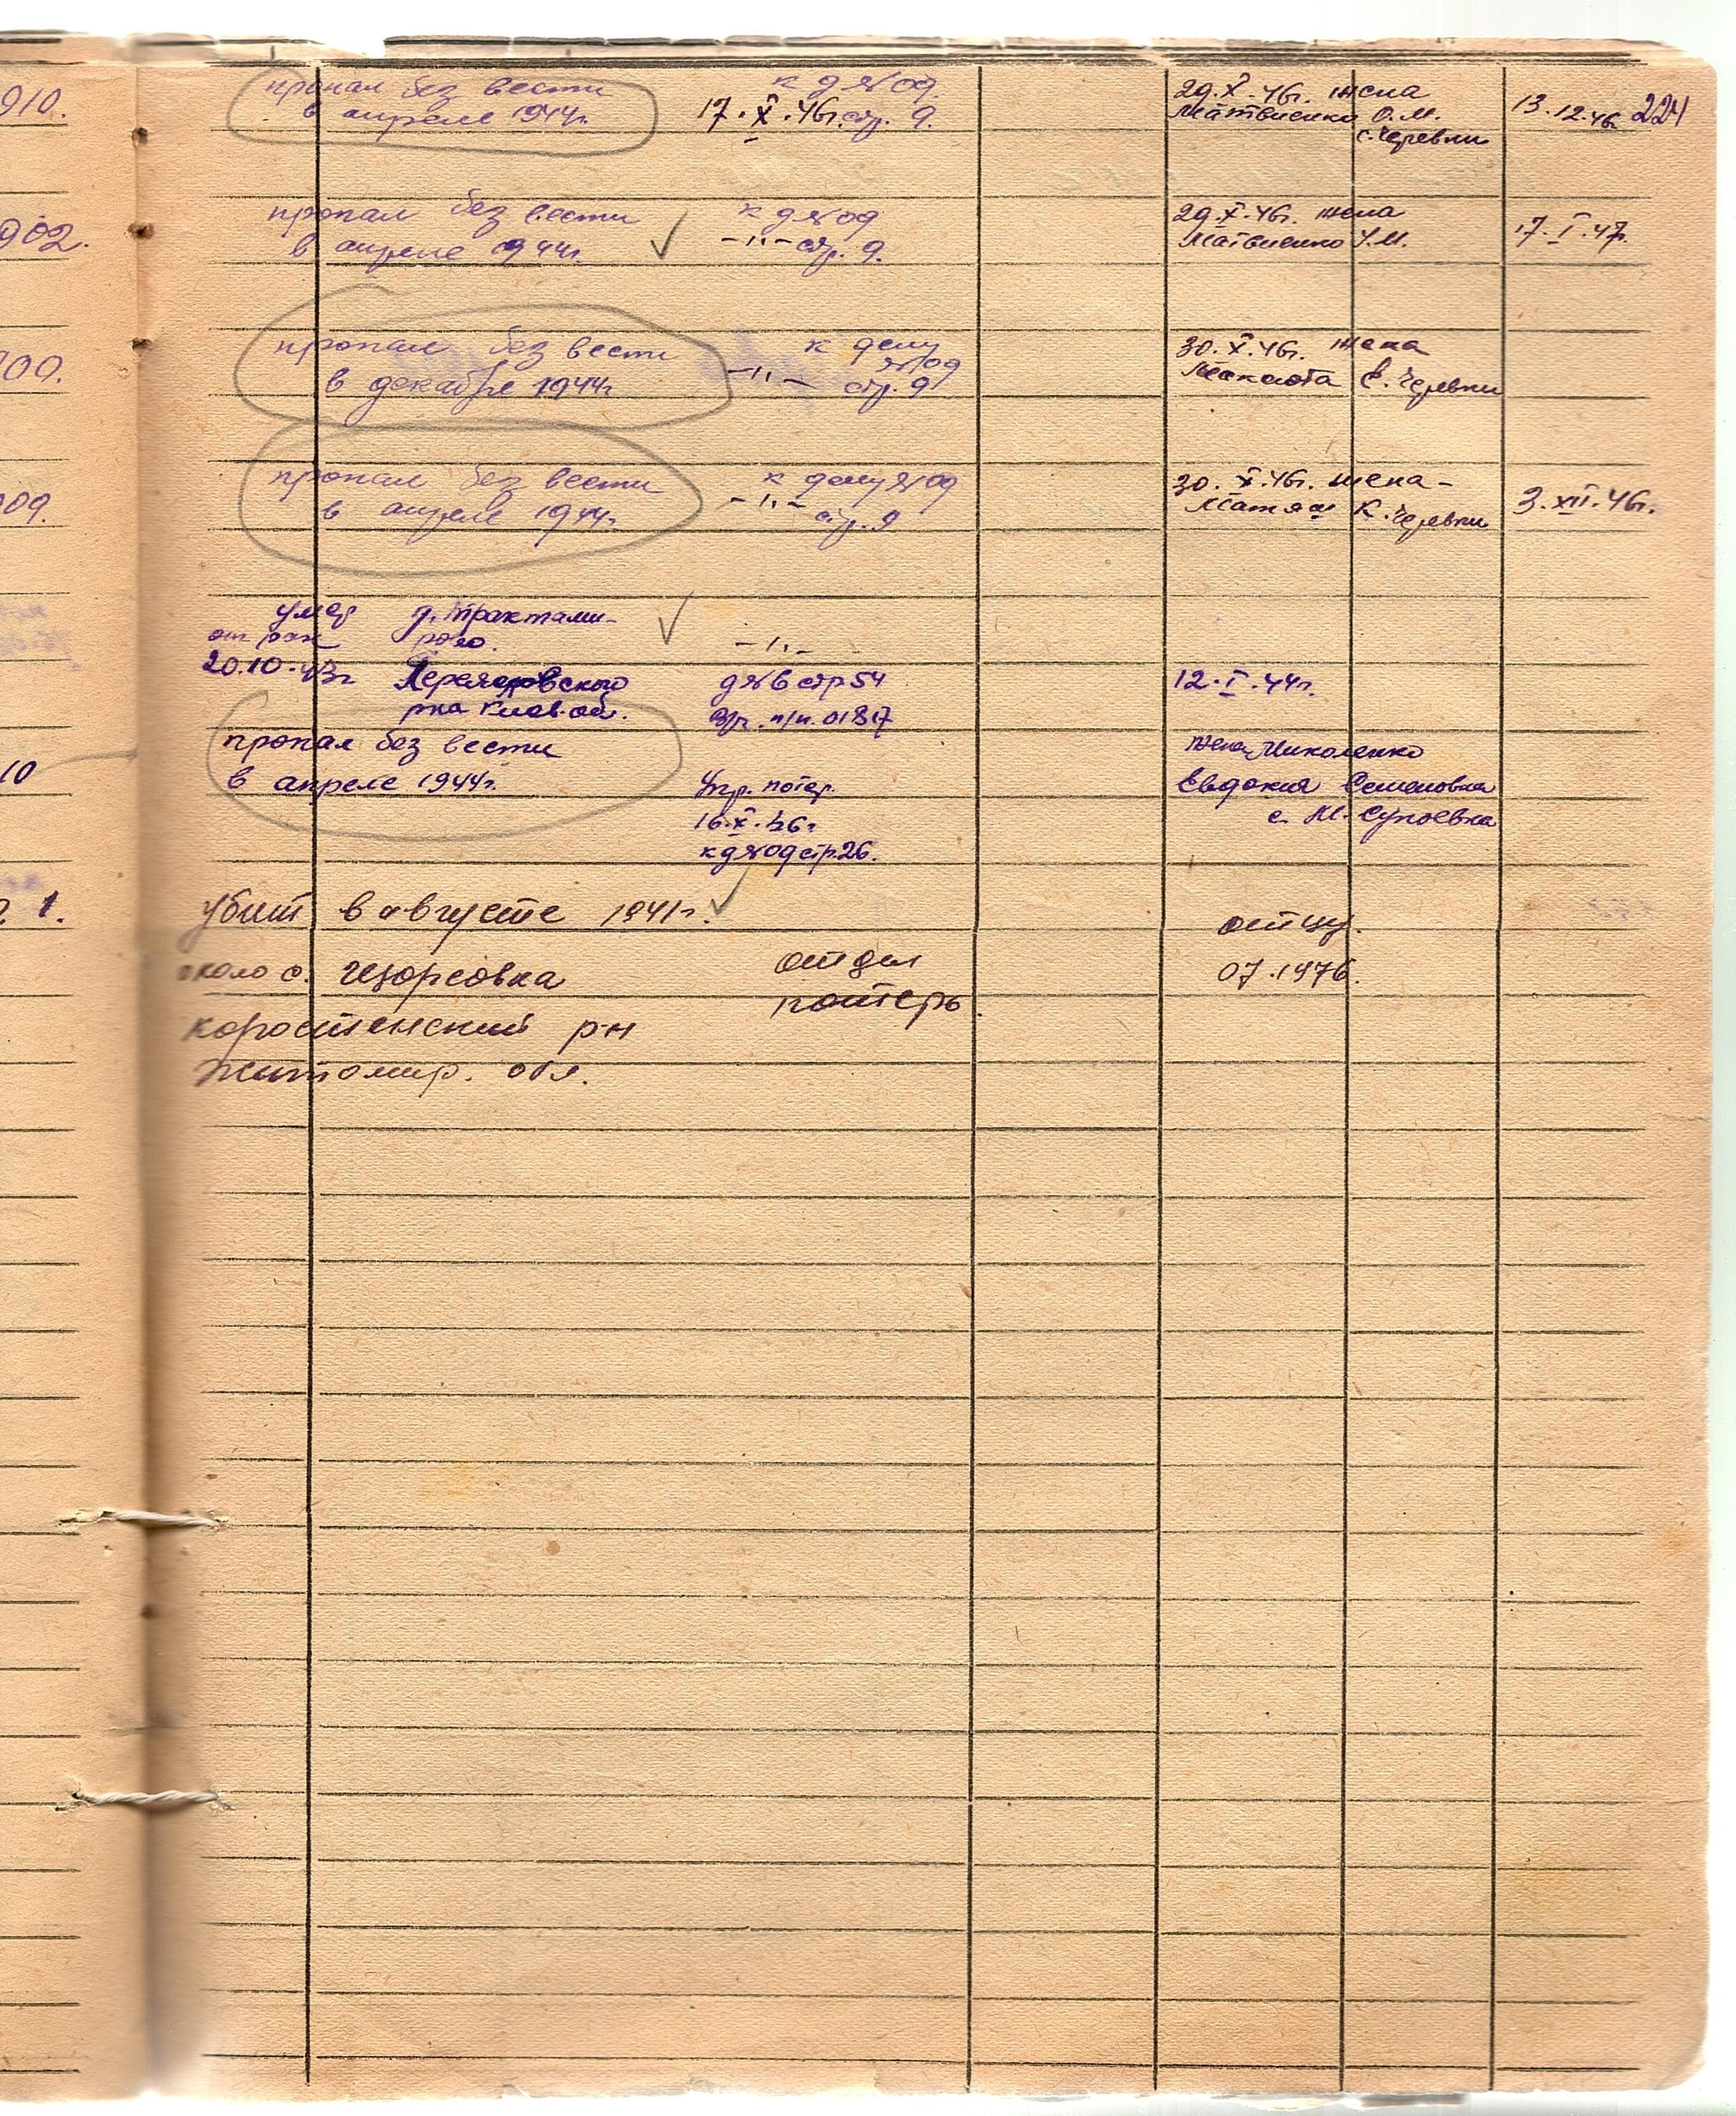 910.
пропал без вести
в апреле 1944г.
к д №09.
17.X.46г. стр. 9.
29.X.46г. жена
Матвиенко О.М.
с. Черевки
13.12.46
224
902.
пропал без вести
в апреле 1944г.
к д №09
-"- стр. 9.
29.X.46г. жена
Матвиенко У.М.
17.I.47.
00.
пропал без вести
в декабре 1944г
к делу
№09
-"- стр. 9
30.X.46г. жена
с. Черевки
09.
пропал без вести
в апреле 1944г.
к делу №09
-"- стр. 9
30.X.46г. жена-
Матяш К. Черевки
3.XII.46г.
умер
от ран
20.10.43г
д. Трактами-
рово.
Переяславского
р-на Киев. об.
-"-
д №6 стр 54
п/п. 01817
12.I.44г.
10
пропал без вести
в апреле 1944г.
Упр. потер.
16.X.46г
к д №09 стр. 26.
жена Николенко
Евдокия Семеновна
с. М. Супоевка
1.
убит в августе 1941г.
около с. Щорсовка
коростенский р-н
житомир. обл.
отдел
потерь.
отцу.
07.1976.